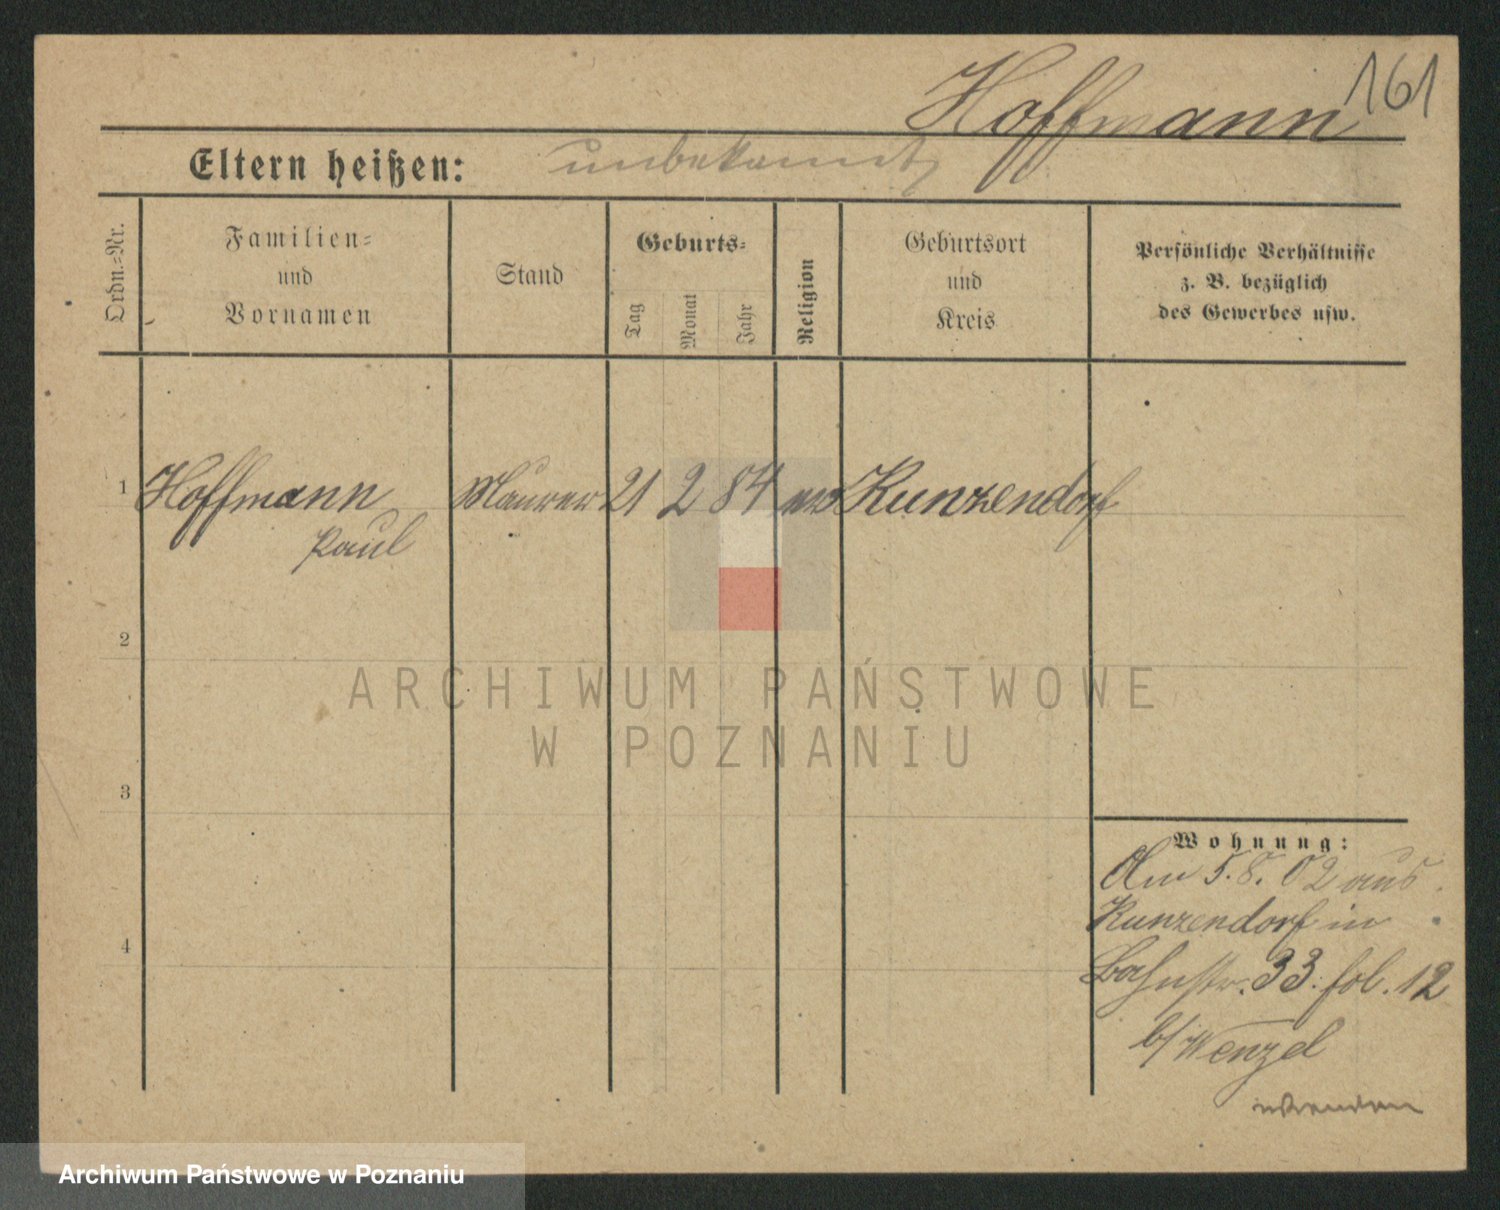 161
Hoffmann
Eltern heißen: unbekannt
Ordn.-Nr.
Familien-
und
Vornamen
Stand
Geburts-
Tag
Monat
Jahr
Religion
Geburtsort
und
Kreis
Persönliche Verhältnisse
z. B. bezüglich
des Gewerbes usw.
1 Hoffmann Maurer 21 2 84 Kunzendorf
Paul
2
3
4
ARCHIWUM PAŃSTWOWE
W POZNANIU
Wohnung:
Am 5. 8. 02 aus
Kunzendorf in
Bahnstr. 33. fol. 12
b/ Wenzel
Archiwum Państwowe w Poznaniu